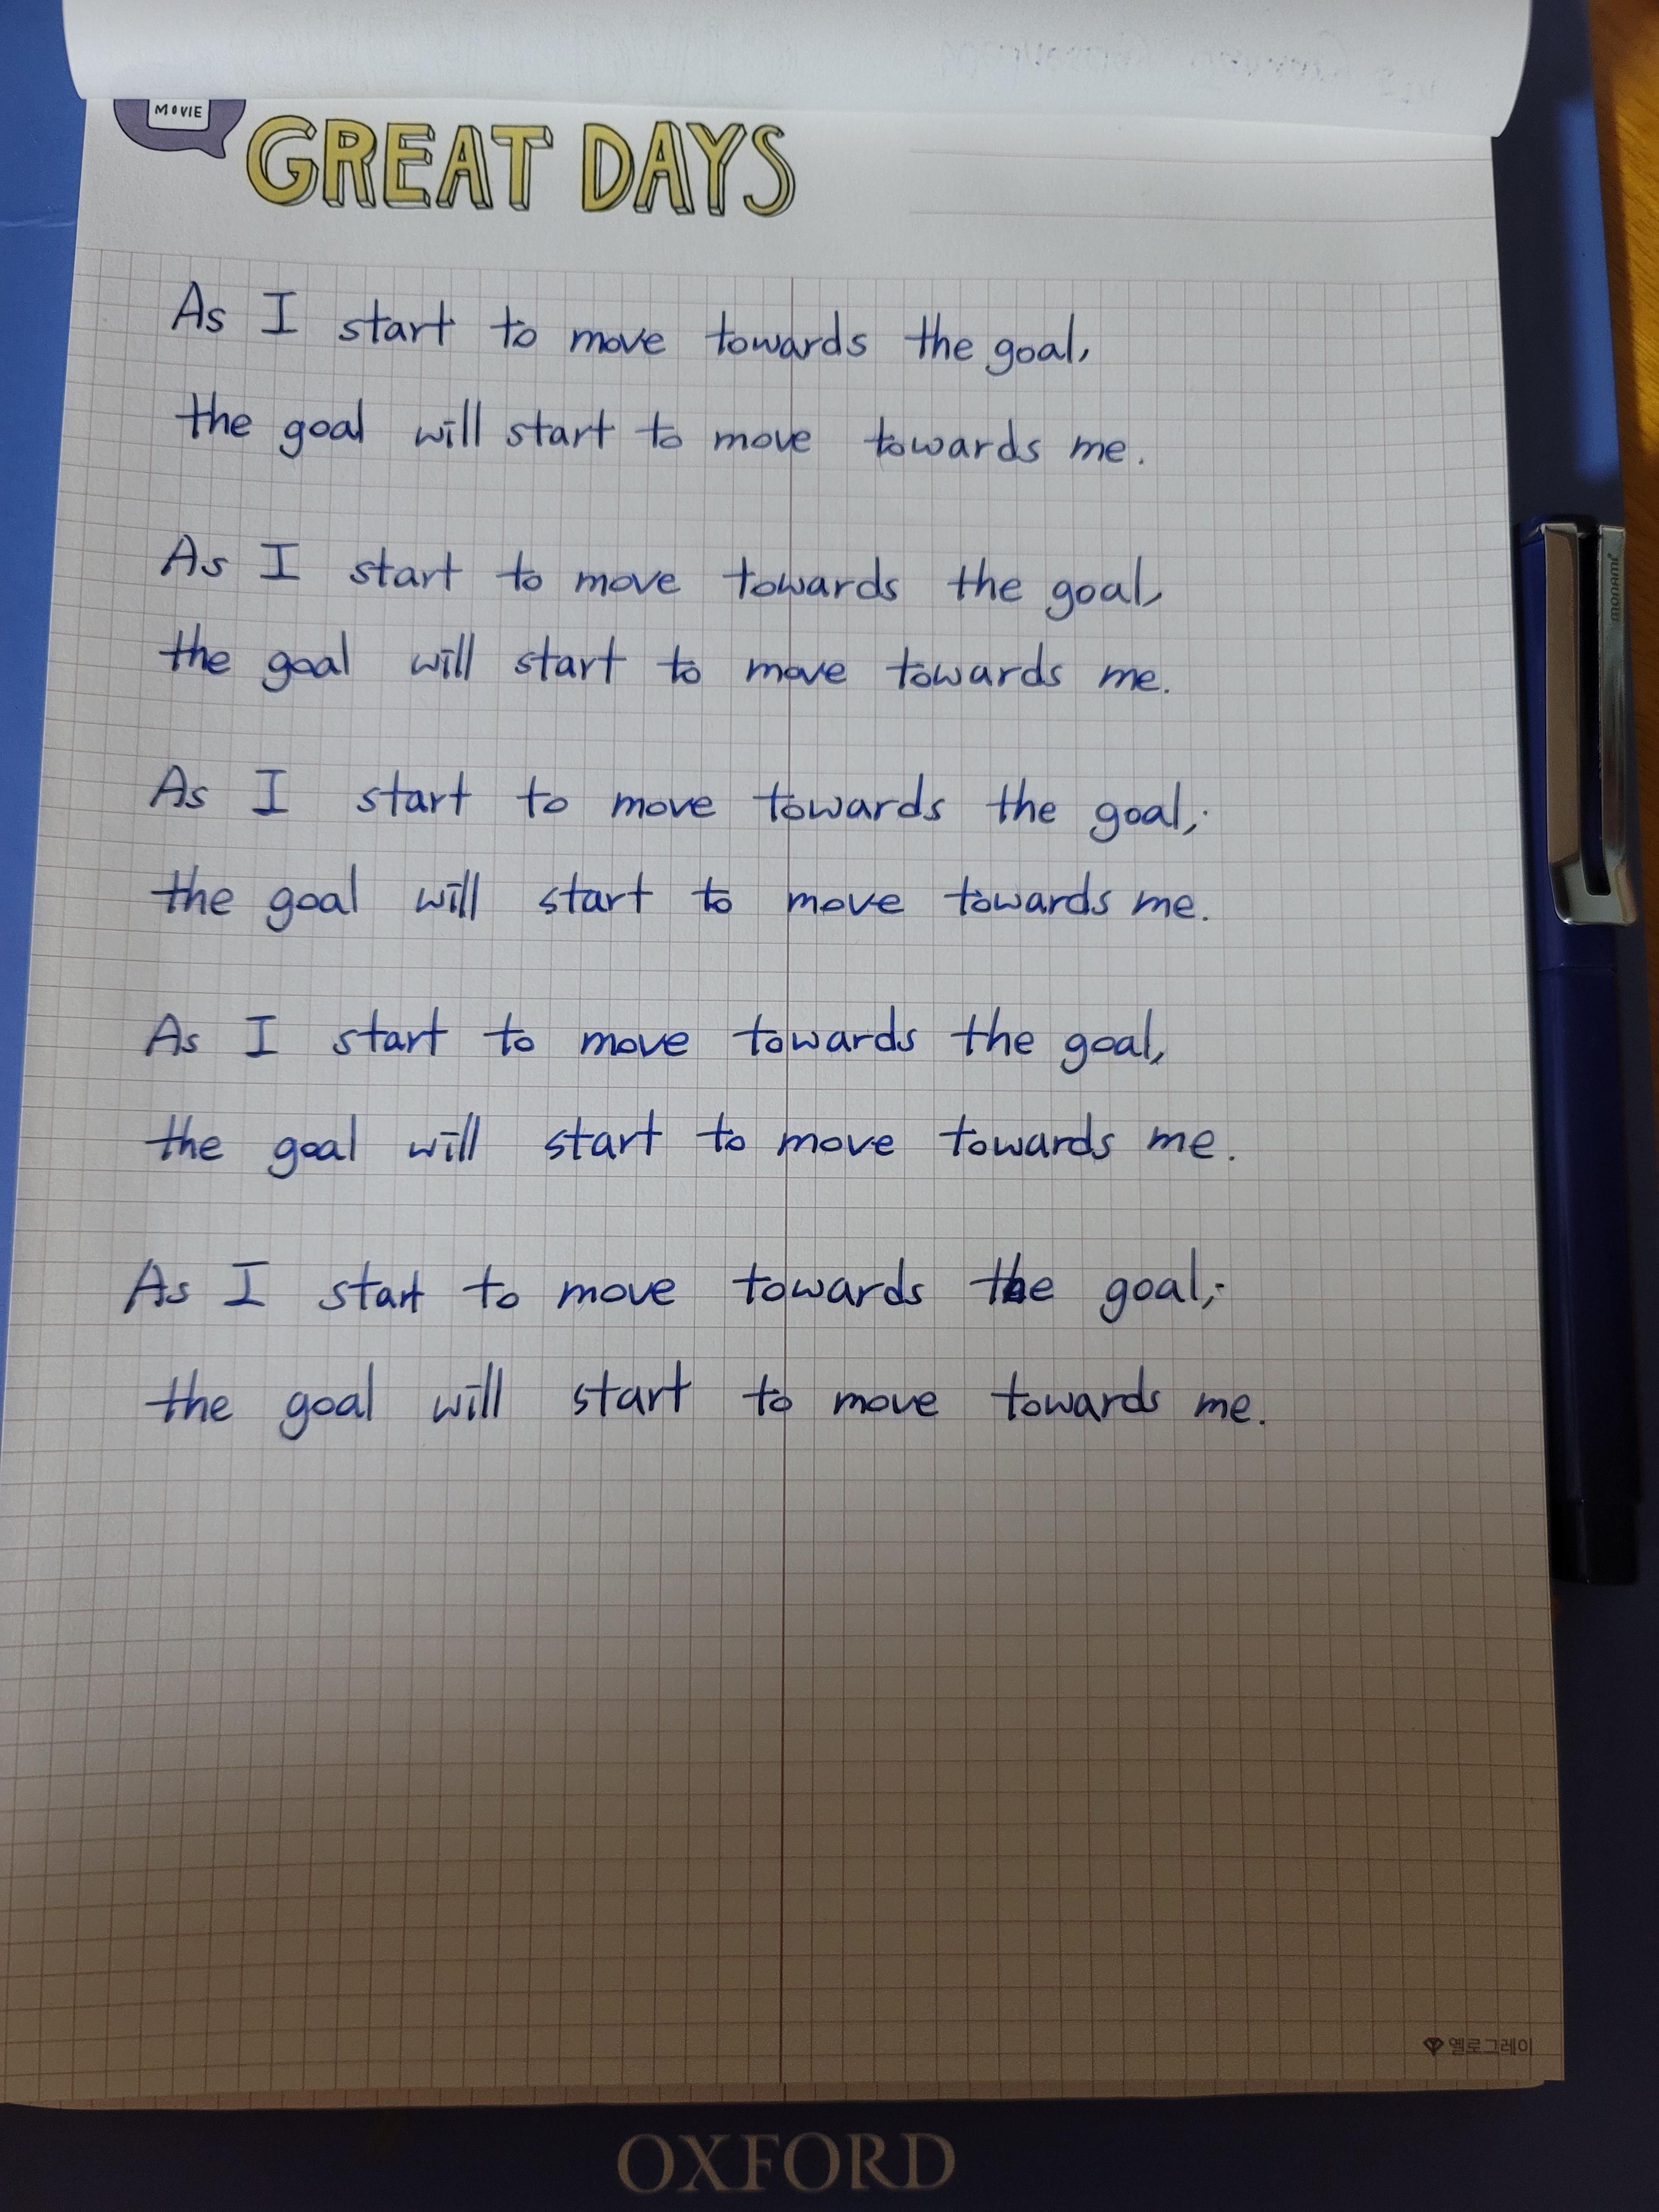 MOVIE
GREAT DAYS
As I start to move towards the goal,
the goal will start to move towards me.
As I start to move towards the goal,
the goal will start to move towards me.
As I start to move towards the goal,
the goal will start to move towards me.
As I start to move towards the goal,
the goal will start to move towards me.
As I start to move towards the goal,
the goal will start to move towards me.
monami
옐로그레이
OXFORD